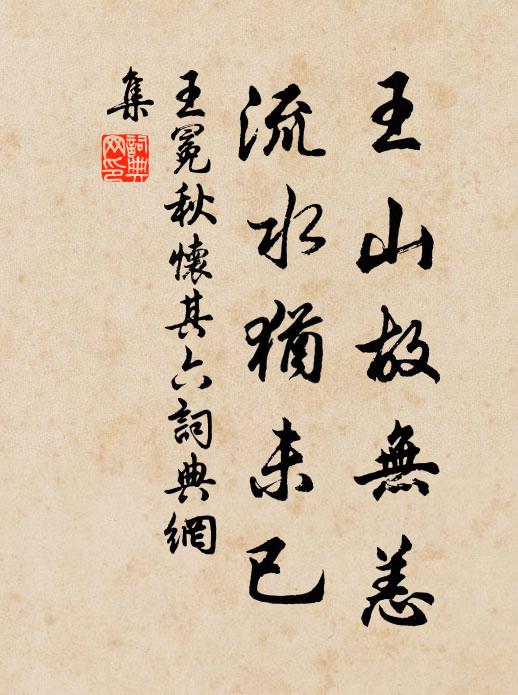 王山故無恙
流水猶未已
王冕秋懷其六詞典網
集
詞典网印